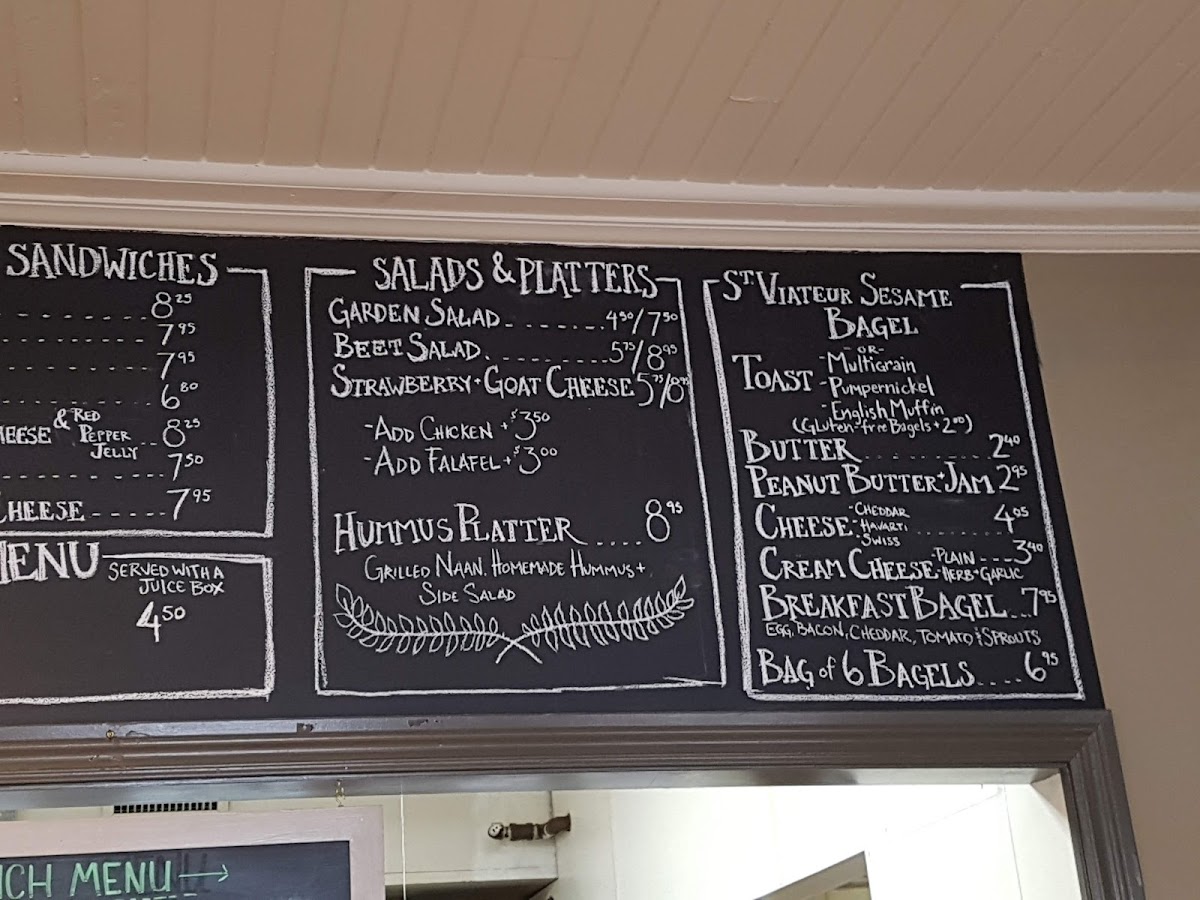 SANDWICHES
8.25
7.95
7.95
6.80
& RED
PEPPER
JELLY
8.25
7.50
CHEESE 7.95
MENU
SERVED WITH A
JUICE BOX
4.50
SALADS & PLATTERS
GARDEN SALAD 4.50/7.50
BEET SALAD 5.75/8.95
STRAWBERRY + GOAT CHEESE 5.75/8.95
- ADD CHICKEN + $3.50
- ADD FALAFEL + $3.00
HUMMUS PLATTER .... 8.95
GRILLED NAAN, HOMEMADE HUMMUS +
SIDE SALAD
ST. VIATEUR SESAME
BAGEL
-OR-
TOAST - Multigrain
- Pumpernickel
- English Muffin
(Gluten-free Bagels + 2.00)
BUTTER 2.40
PEANUT BUTTER + JAM 2.95
CHEESE - CHEDDAR
- HAVARTI
- SWISS
4.05
CREAM CHEESE - PLAIN 3.40
- HERB + GARLIC
BREAKFAST BAGEL 7.95
EGG, BACON, CHEDDAR, TOMATO, & SPROUTS
BAG of 6 BAGELS .... 6.95
MENU →